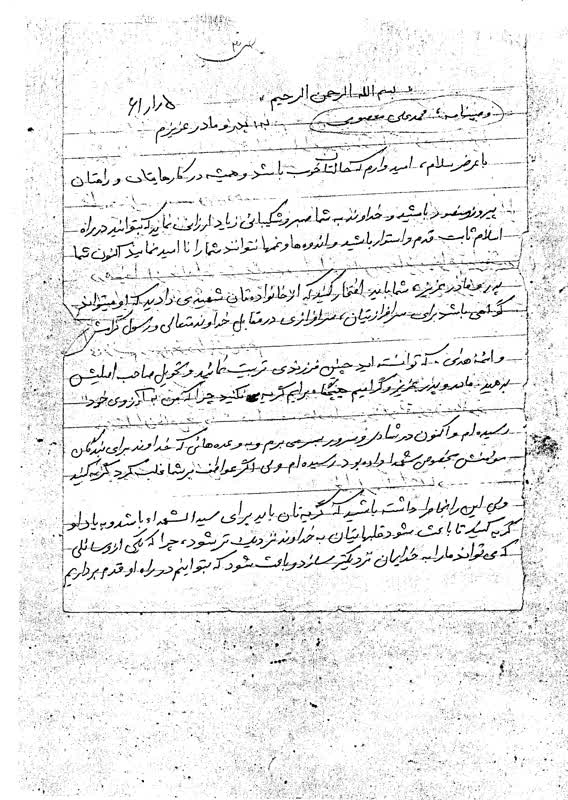 بسم الله الرحمن الرحیم
وصیتنامه: محمد علی معصومی
به: پدر و مادر عزیزم
با عرض سلام، امیدوارم که حالتان خوب باشد و همیشه در کارهایتان و راهتان
پیروز و منصور باشید و خداوند به شما صبر و شکیبائی زیاد ارزانی نماید که بتوانید در راه
اسلام ثابت قدم و استوار باشید و اندوه‌ها و غمها نتوانند شما را نا امید نمایند اکنون شما
پدر و مادر عزیز، شما باید افتخار کنید که از خانواده‌تان شهیدی دادید که او میتواند
گواهی باشد برای سرافرازیتان، سرافرازی در مقابل خداوند متعالی و رسول گرامیش
و ائمه هدی، که توانسته اید چنین فرزندی تربیت نمائید و تحویل صاحب اصلیش
بدهید. مادر و پدر عزیز و گرامیم هیچگاه برایم گریه نکنید چرا که من به آرزوی خود
رسیده ام و اکنون در شادی و سرور بسر می برم و به وعده هائی که خداوند برای بندگان
مومنش بخصوص شهدا داده بود رسیده ام ولی اگر عواطف بر شما غلبه کرد گریه کنید
ولی این را بخاطر داشته باشید که گریه‌تان باید برای سید الشهداء باشد و به یاد او
گریه کنید تا باعث شود قلبهایتان به خداوند نزدیک تر شود، چرا که یکی از وسائلی
که می تواند ما را به خدایمان نزدیکتر سازد و باعث شود که بتوانیم در راه او قدم برداریم